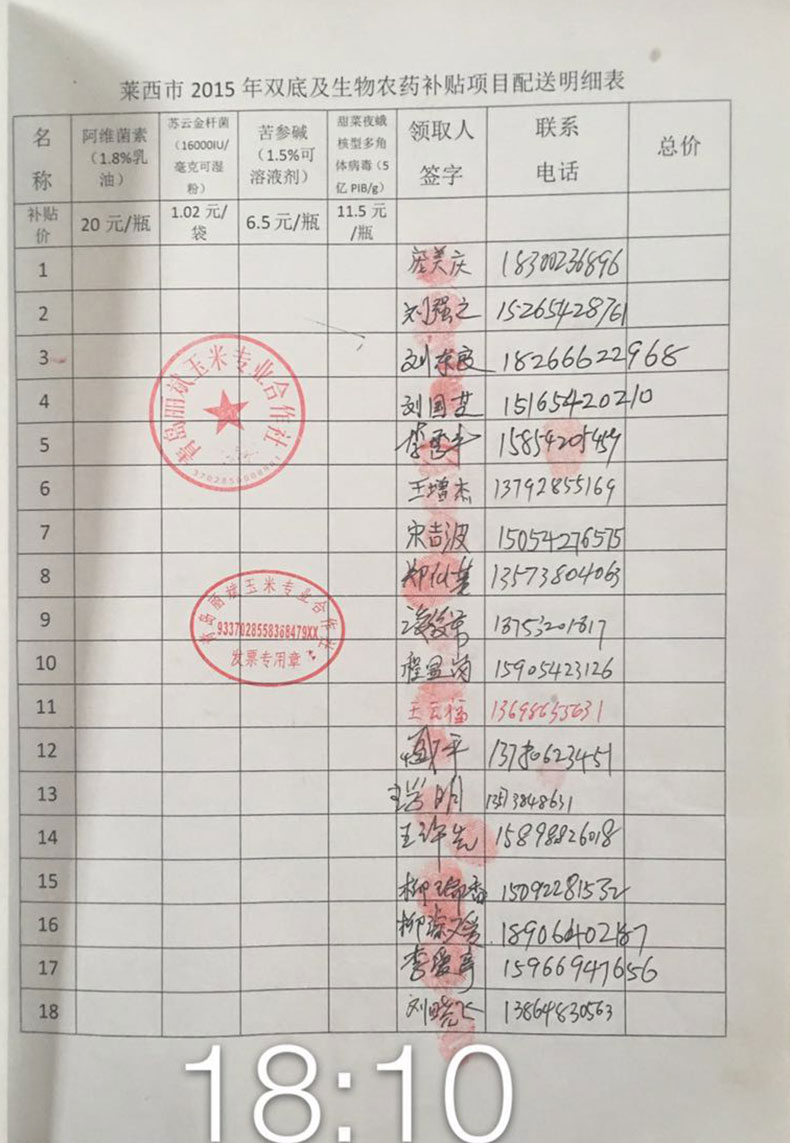 莱西市 2015 年双底及生物农药补贴项目配送明细表
名称 阿维菌素（1.8%乳油） 苏云金杆菌（16000IU/毫克可湿粉） 苦参碱（1.5%可溶液剂） 甜菜夜蛾核型多角体病毒（5亿 PIB/g） 领取人签字 联系电话 总价
补贴价 20 元/瓶 1.02 元/袋 6.5 元/瓶 11.5 元/瓶
1 美庆 18300236896
2 刘强之 15265428761
3 刘东 18266622968
4 刘国 15165420210
5 李 15854205459
6 王增杰 13792855169
7 宋吉波 15054276575
8 郑仙 13573804063
9 18753201817
10 程显 15905423126
11 王云福 13698655631
12 平 13780623451
13 明
14 王许先 15898826018
15 柳 香 15092281532
16 柳 18906402187
17 李 15966947656
18 刘晓飞 13864830563
青岛丽斌玉米专业合作社
青岛丽斌玉米专业合作社
9337028558368479XX
发票专用章
18:10